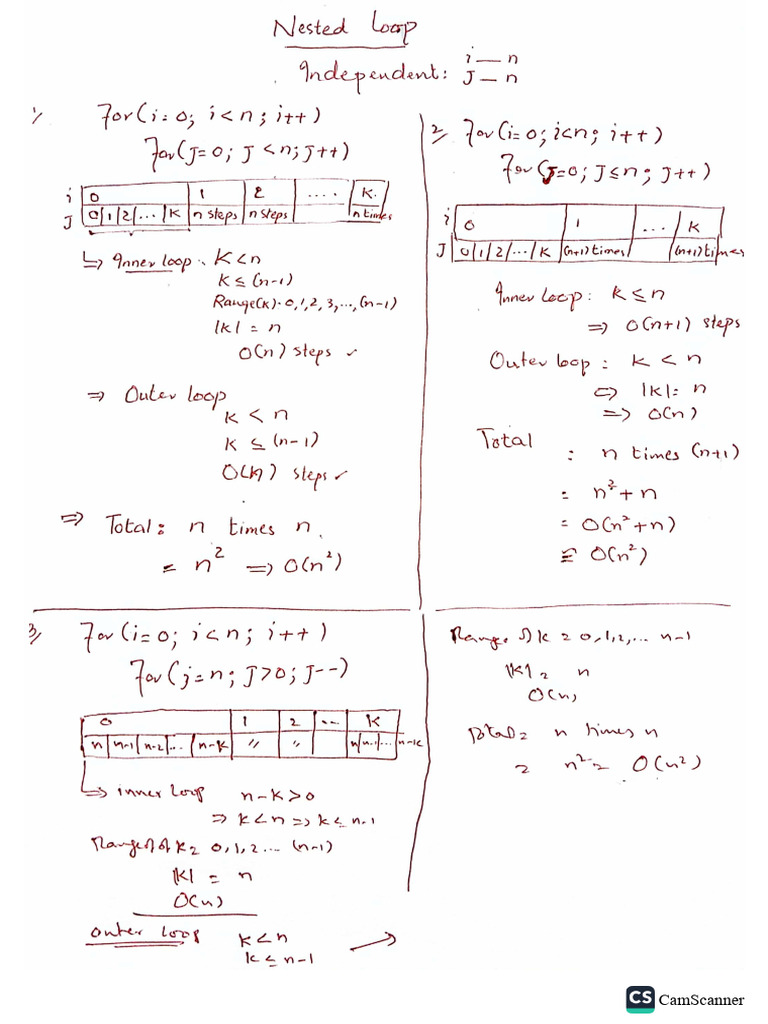 Nested Loop
Independent: i — n
J — n
1) For(i=0; i<n; i++)
For(J=0; J<n; J++)
i 0 1 2 .... K
J 0|1|2|...|K n steps n steps n times
↳ Inner loop: K<n
K≤(n-1)
Range(K): 0,1,2,3,...,(n-1)
|K| = n
O(n) steps ✓
⇒ Outer loop
K < n
K ≤ (n-1)
O(n) steps ✓
⇒ Total: n times n.
= n² ⇒ O(n²)
2) For(i=0; i<n; i++)
For(J=0; J≤n; J++)
i 0 1 ... K
J 0|1|2|...K (n+1)times (n+1)times
Inner Loop: K≤n
⇒ O(n+1) steps
Outer loop: K<n
⇔ |K|= n
⇒ O(n)
Total
: n times (n+1)
= n²+n
= O(n²+n)
≅ O(n²)
3) For(i=0; i<n; i++)
For(j=n; J>0; J--)
0 1 2 -- K
n|n-1|n-2|... n-K " " n|n-1|... n-K
↳ inner loop n-K>0
⇒ K<n ⇒ K≤n-1
Range of K = 0,1,2...(n-1)
|K| = n
O(n)
outer loop K<n
K≤n-1
Range of K = 0,1,2,... n-1
|K| = n
O(n)
Total = n times n
= n² = O(n²)
CS CamScanner